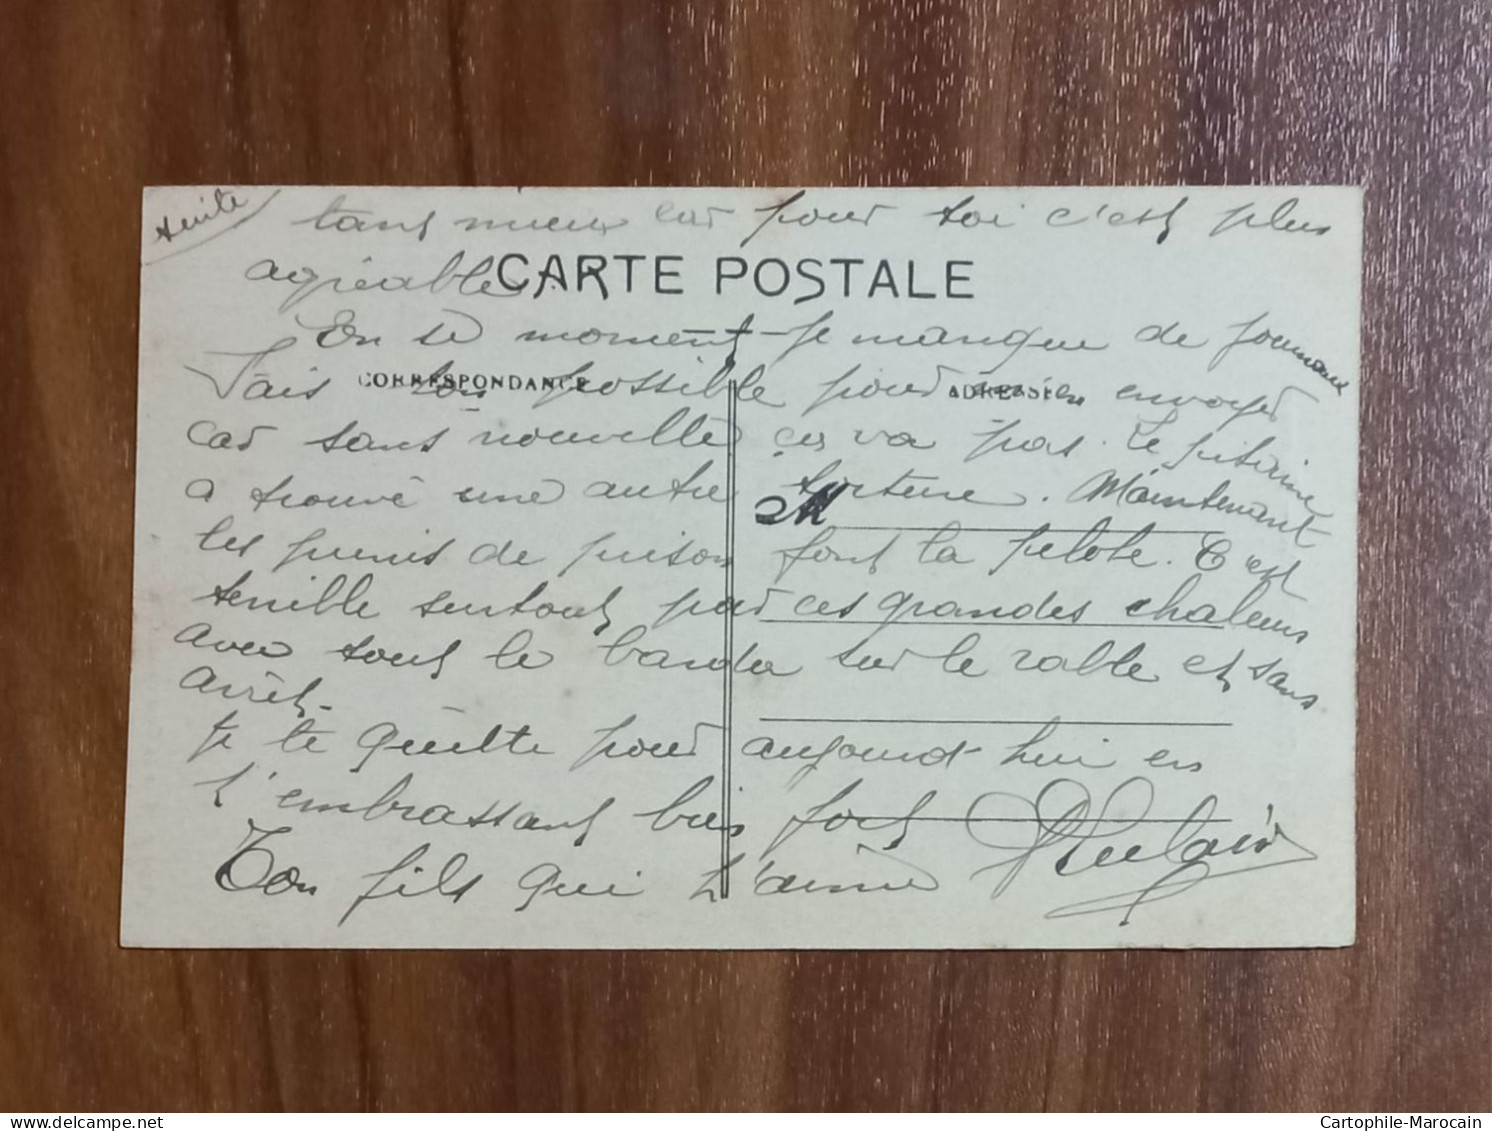 suite
tant mieux car pour toi c'est plus
agréable.
CARTE POSTALE
En se moment je manque de journaux
CORRESPONDANCE
ADRESSE
Fais ton possible pour en envoyer
car sans nouvelle ça va pas. Le pitaine
a trouvé une autre torture. Maintenant
M
les punis de prison font la pelote. C'est
terrible surtout par ces grandes chaleurs
avec tout le barda sur le rable et sans
arrêt.
Je te quitte pour aujourd'hui en
t'embrassant bien fort
Ton fils qui t'aime
www.delcampe.net
Cartophile-Marocain